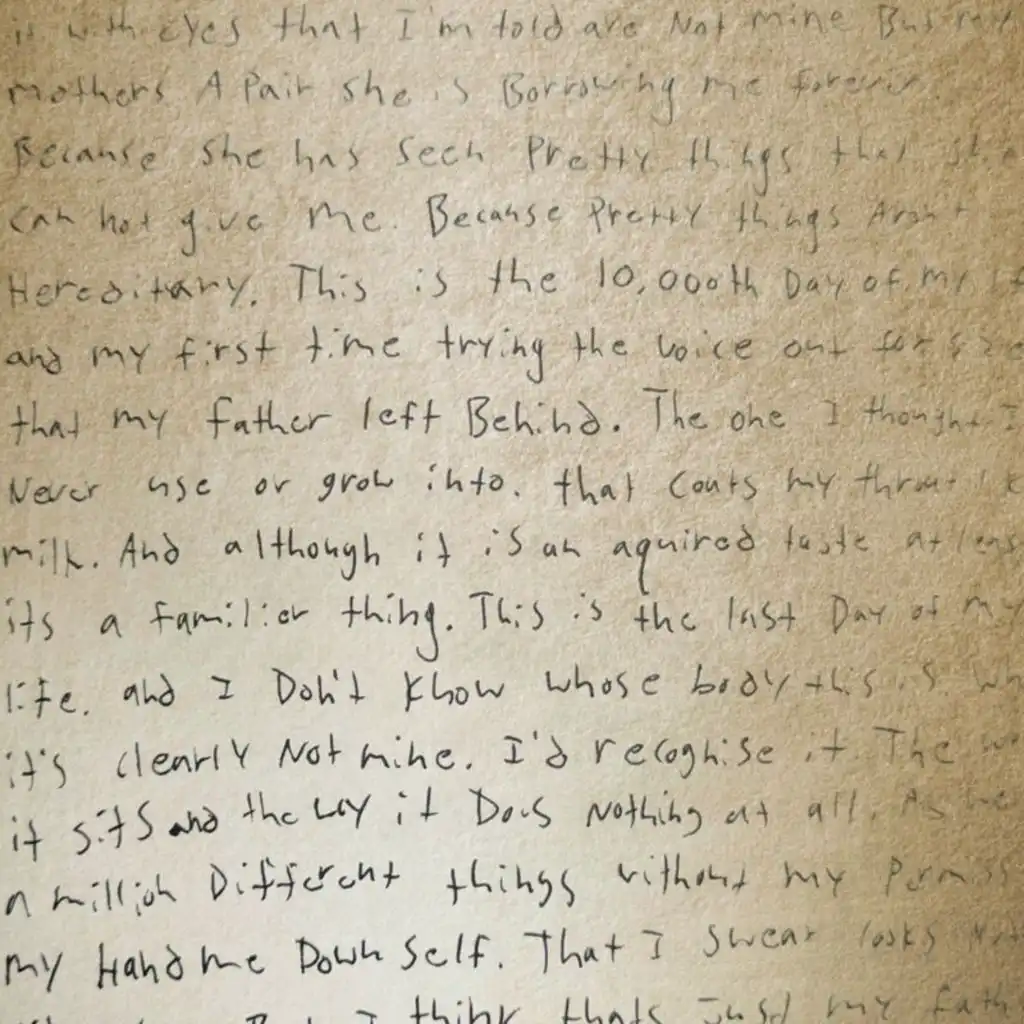 it with eyes that I'm told are Not mine But my
mothers A Pair she is Borrowing me forever
Because she has Seen Pretty things that she
can not give me. Because Pretty things Aren't
Hereditary. This is the 10,000th Day of my
and my first time trying the voice out for size
that my father left Behind. The one I thought I
Never use or grow into. that Coats my throat
milk. And although it is an aquired taste at
its a familier thing. This is the last Day of my
life. and I Don't know whose body this is.
it's clearly Not mine. I'd recoghise it. The
it sits and the way it Does Nothing at all.
a million Different things without my
my Hand me Down self. That I swear looks
But I think thats Just my